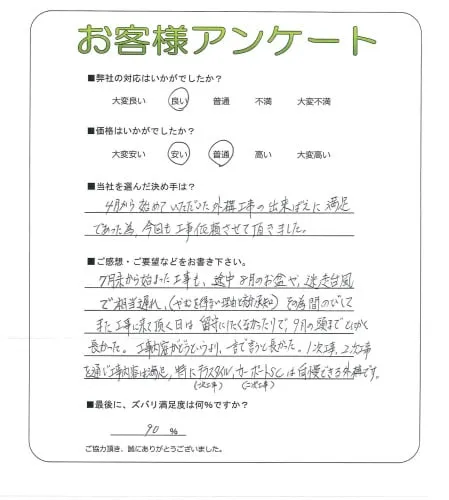 お客様アンケート
■弊社の対応はいかがでしたか?
大変良い 良い 普通 不満 大変不満
■価格はいかがでしたか?
大変安い 安い 普通 高い 大変高い
■当社を選んだ決め手は?
4月から始めていただいた外構工事の出来ばえに満足
であった為、今回も工事依頼させて頂きました。
■ご感想・ご要望などをお書き下さい。
7月末から始まった工事も、途中8月のお盆や、迷走台風
で相当遅れ、(やむを得ない理由と放承知) その為間のびして
また工事に来て頂く日は留守にしたくなかったりで、9月の頭までとにかく
長かった。工事内容がどうというより、一言で言うと長かった。1次工事、2次工事
を通じ工事内容は満足、特にテラスタイル、カーポートSCは自慢できる外構です。
(一次工事) (二次工事)
■最後に、ズバリ満足度は何%ですか?
90 %
ご協力頂き、誠にありがとうございました。